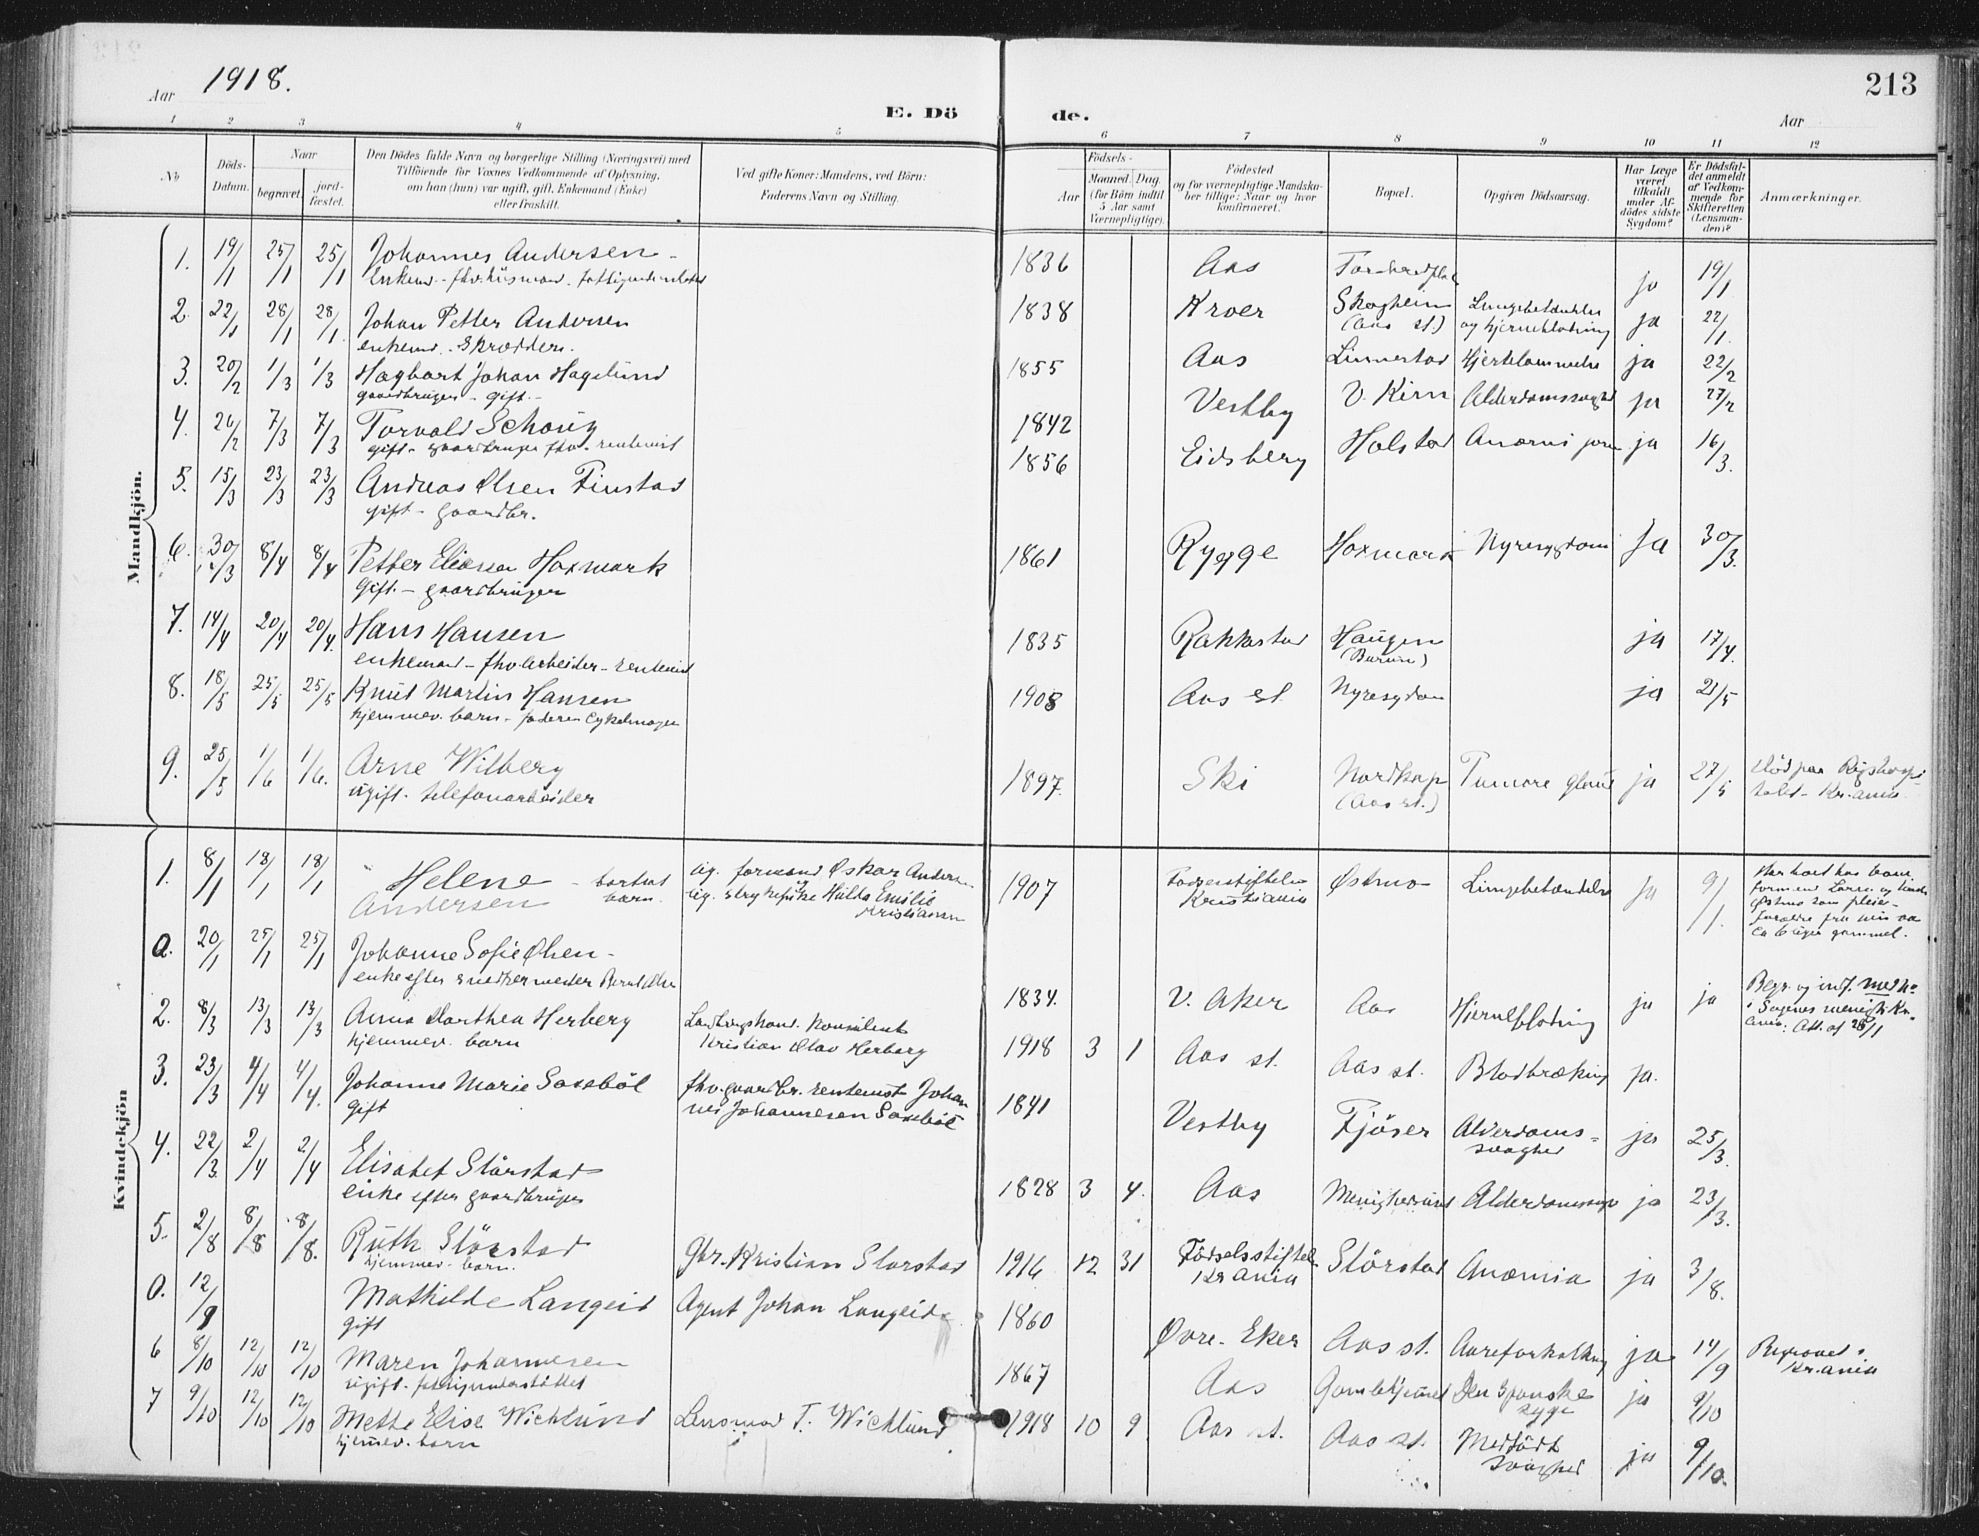 213
Aar 1918.
E. Döde.
Aar
1 2 3 4 5 6 7 8 9 10 11 12
No
Döds-Datum.
Naar
begravet.
jord-fæstet.
Den Dödes fulde Navn og borgerlige Stilling (Næringsvei) med
Tilföiende for Voxnes Vedkommende af Oplysning,
om han (hun) var ugift, gift, Enkemand (Enke)
eller fraskilt.
Ved gifte Koner: Mandens, ved Börn:
Faderens Navn og Stilling.
Födsels-
Aar
Maaned. Dag.
(for Börn indtil
5 Aar samt
Værnepligtige).
Födested
og for værnepligtige Mandska-
ber tillige: Naar og hvor
konfirmeret.
Bopæl.
Opgiven Dödsaarsag.
Har Læge
været
tilkaldt
under Af-
dödes sidste
Sygdom?
Er Dödsfal-
det anmeldt
af Vedkom-
mende for
Skifteretten
(Lensman-
den)?
Anmærkninger.
Mandkjön.
1. 19/1 25/1 25/1 Johannes Andersen 1836 Aas ja 19/1
Enkem. - fhv. husmand.
2. 22/1 28/1 28/1 Johan Petter Andersen 1838 Kroer Skogheim (Aas st.) Lungebetændelse og hjerneblødning ja 22/1
enkem. - Skrædder.
3. 20/2 1/3 1/3 Hagbart Johan Hagelund 1855 Aas Linnestad Hjertelammelse ja 22/2
gaardbruger - gift -
4. 26/2 7/3 7/3 Torvald Schoug 1842 Vestby V. Kirn Alderdomssvaghed ja 27/2
gift - gaardbruger fhv. rentenist
5. 15/3 23/3 23/3 Andreas Olsen Finstad 1856 Eidsberg Holstad ja 16/3.
gift - gaardbr.
6. 30/3 8/4 8/4 Petter Eliassen Hoxmark 1861 Rygge Hoxmark Nyresygdom Ja 30/3.
Gift. - gaardbruger
7. 14/4 20/4 20/4. Hans Hansen 1835 Rakkestad Haugen ja 17/4.
enkemand - fhv. arbeider - rentenist
8. 18/5 25/5 25/5 Knut Martin Hansen 1908 Aas st. Nyresygdom ja 21/5
hjemmev. barn - faderen Cykelmager
9. 25/5 1/6 1/6. Arne Wilberg 1897. Ski Nordkap (Aas st.) ja 27/5 død paa Rigshospitalet - Kr.ania.
ugift. telefonarbeider
Kvindekjön
1. 8/1 18/1 18/1 Helene Andersen - bortsat barn. ug. formand Oskar Andersen og ug. strykepike Hulda Emilie Kristiansen 1907 Fødselsstiftelsen Kristiania Østmo Lungebetændelse ja 9/1.
0. 20/1 25/1 25/1 Johanne Sofie Olsen - 1834. V. Aker Aas Hjerneblødning ja ja
enke efter snedkermester Bernt Olsen
2. 8/3 13/3 13/3 Anna Dorthea Herberg Landbrugskand. Konsulent Kristian Olav Herberg 1918 3 1 Aas st. Aas st. Blodbrækning ja.
hjemmev. barn
3. 23/3 4/4 4/4. Johanne Marie Saxebøl fhv. gaardbr. rentenist Johannes Johannesen Saxebøl 1841 Vestby Fjøser Alderdoms-svaghed ja 25/3.
gift
4. 22/3 2/4 2/4 Elisabet Störstad 1828 3 4. Aas Alderdomssvag ja 23/3.
enke efter gaardbruger
5. 2/8 8/8 8/8. Ruth Störstad Gbr. Kristian Storstad 1916 12 31 Födselsstiftelsen Kr.ania Störstad Anæmia ja 3/8.
hjemmev. barn.
0. 12/9 Mathilde Langeid Agent Johan Langeid. 1860 Øvre-Eker Aas st. Aareforkalkning ja 14/9 Begravet i Kr.ania
gift
6 8/10 12/10 12/10 Maren Johannesen 1867 Aas Gamlehjemmet Den spanske syge ja 9/10
ugift. fattigunderstøttet
7 9/10 12/10 12/10 Mette Elise Wichlund Lensmand T. Wichlund 1918 10 9 Aas st. Aas st. Medfödt svaghed ja 9/10.
hjemmev. barn